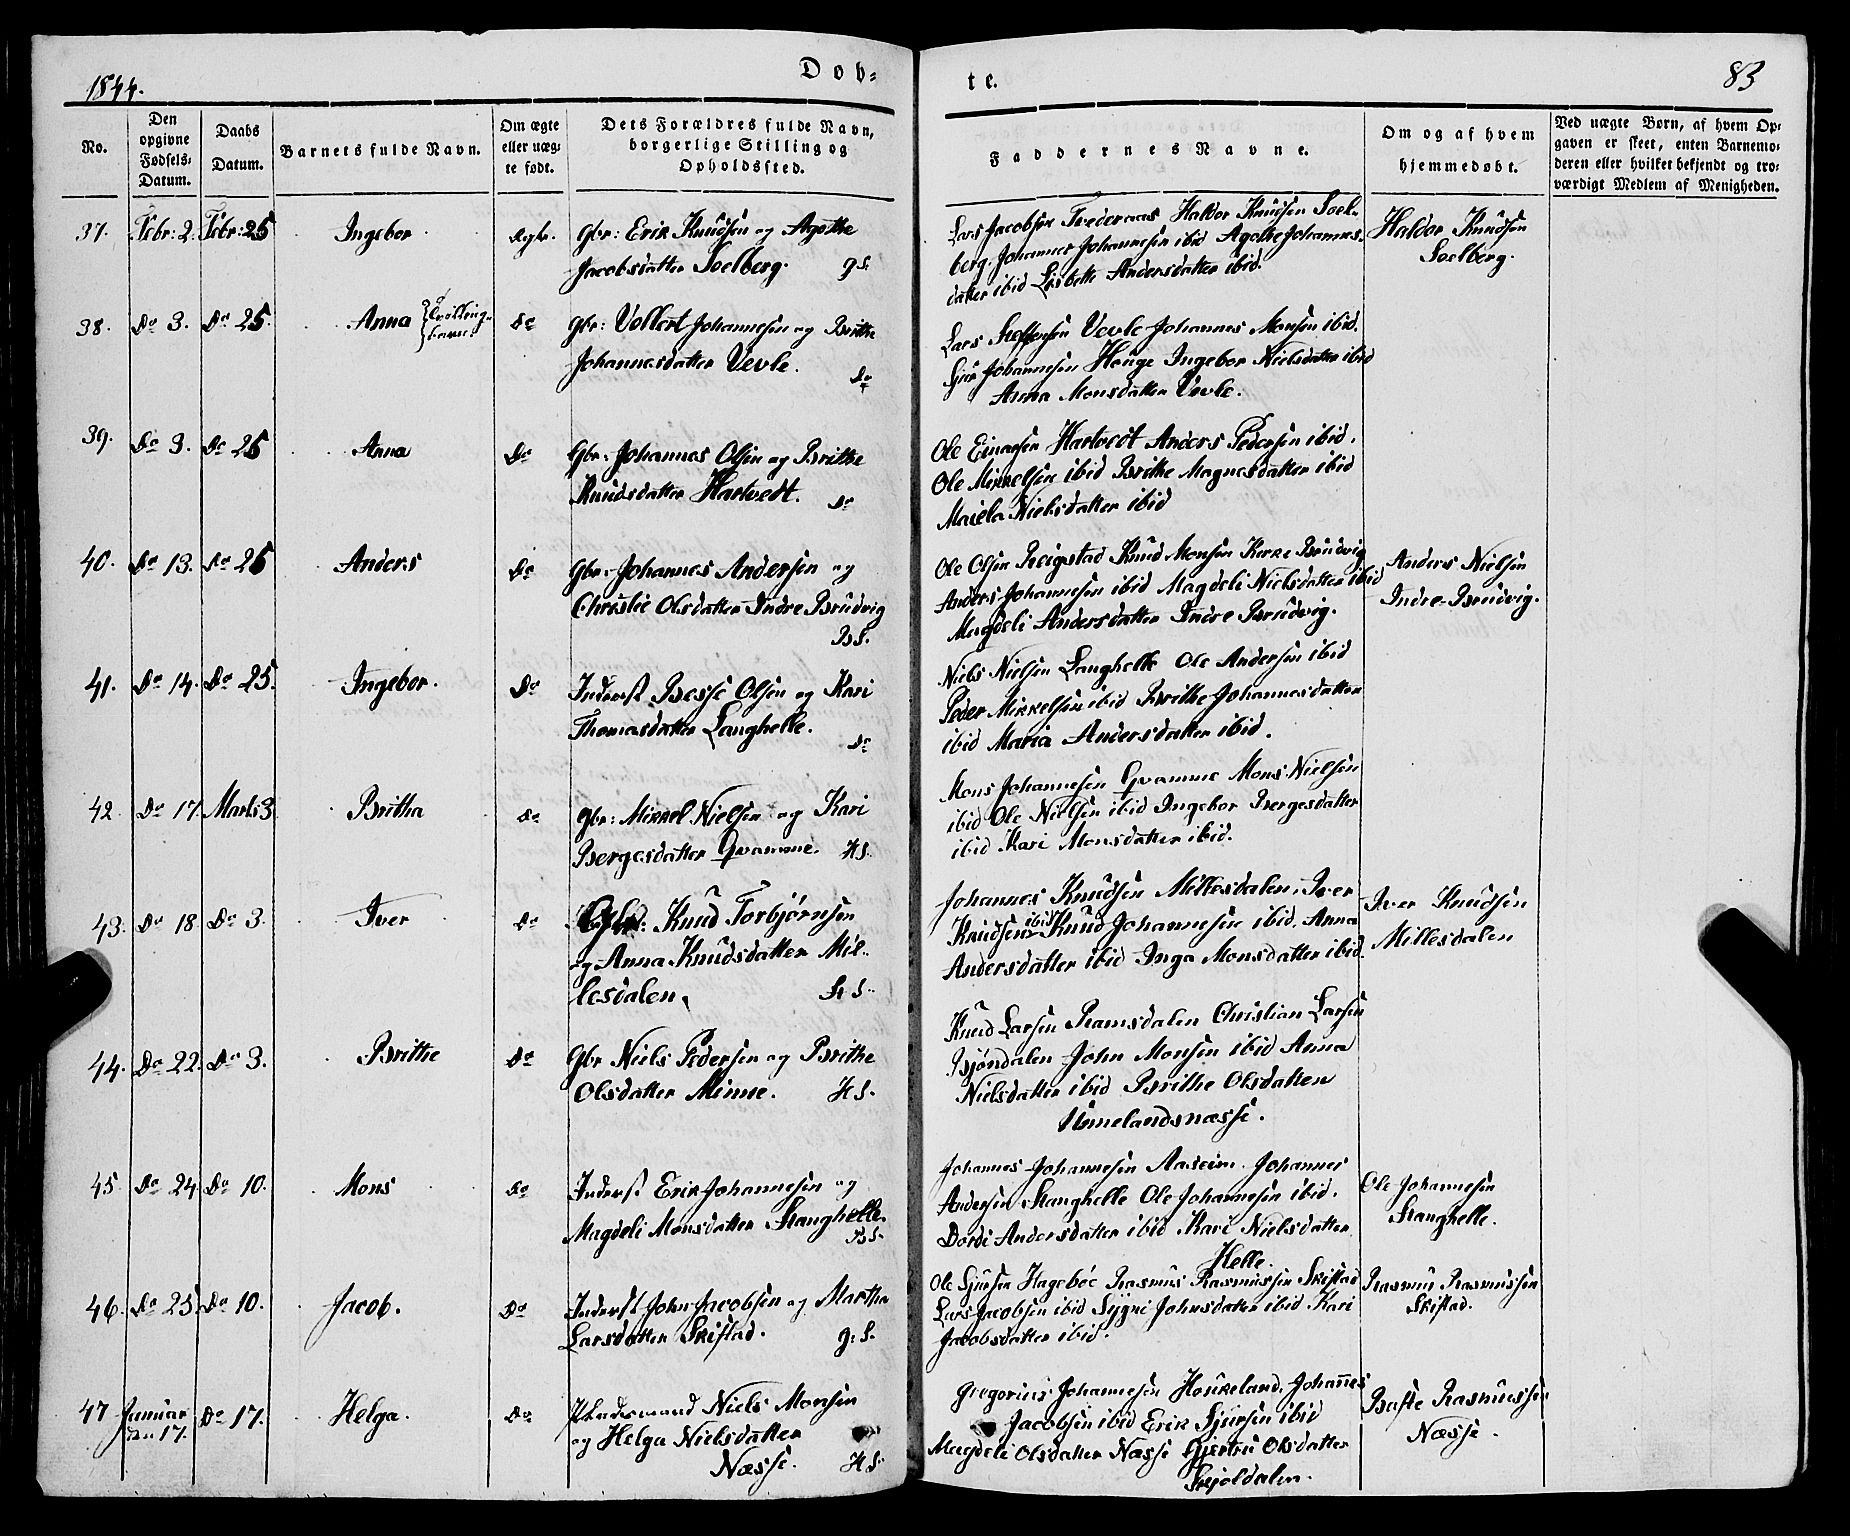 1844.
Døb-
te.
83
No.
Den opgivne Fødsels-Datum.
Daabs Datum.
Barnets fulde Navn.
Om ægte eller uæg-te født.
Dets Forældres fulde Navn, borgerlige Stilling og Opholdssted.
Faddernes Navne.
Om og af hvem hjemmedøbt.
Ved uægte Børn, af hvem Op-gaven er skeet, enten Barnemo-deren eller hvilket bekjendt og tro-værdigt Medlem af Menigheden.
37. Febr: 2. Febr: 25 Ingebor Ægt. Gbr: Erik Knudsen og Agathe
Jacobsdatter Soelberg. G S.
Lars Jacobsen Haldor Knudsen Soel-
berg, Johannes Johannesen ibid Agathe Johannes-
datter ibid Lisbeth Andersdatter ibid.
Haldor Knudsen
Soelberg.
38. Do 3. Do 25. Anna Do Gbr: Vollert Johannesen og Brithe
Johannesdatter Vevle. Do
Lars Steffensen Vevle Johannes Monsen ibid.
Sjur Johannesen Houge Ingebor Nielsdatter ibid
Anna Monsdatter Vevle.
39. Do 3. Do 25 Anna Do Gbr. Johannes Olsen og Brithe
Knudsdatter Hartvedt. Do
Ole Einarsen Hartvedt Anders Pedersen ibid.
Ole Mikkelsen ibid Brithe Magnesdatter ibid
Nielsdatter ibid
40. Do 13. Do 25 Anders Do Gbr. Johannes Andersen og
Olsdatter Indre Brudvig
B S.
Ole Olsen Reigstad Knud Monsen Kirke Brudvig
Anders Johannesen ibid Magdeli Nielsdatter ibid
Magdeli Andersdatter Indre Brudvig.
Anders Nielsen
Indre-Brudvig.
41. Do 14. Do 25. Ingebor. Do Inderst Besse Olsen og Kari
Thomasdatter Langhelle. Do
Niels Nielsen Langhelle Ole Andersen ibid
Peder Mikkelsen ibid Brithe Johannesdatter
ibid Maria Andersdatter ibid.
42 Do 17. Marts 3 Britha Do Gbr: Mikkel Nielsen og Kari
Bergesdatter Qvamme. H S.
Mons Johannesen Qvamme Mons Nielsen
ibid Ole Nielsen ibid Ingebor Bergesdatter
ibid Kari Monsdatter ibid.
43. Do 18 Do 3. Iver Do Gbr: Knud Torbjørnsen
og Anna Knudsdatter Mil-
lesdalen. St S.
Johannes Knudsen Millesdalen. Iver
Knudsen ibid Knud Johannesen ibid. Anna
Andersdatter ibid Inga Monsdatter ibid.
Iver Knudsen
Millesdalen
44. Do 22. Do 3. Brithe Do Gbr Niels Pedersen og Brithe
Olsdatter Minne. H S.
Knud Larsen Ramsdalen Christian Larsen
Bjøndalen John Monsen ibid Anna
Nielsdatter ibid Brithe Olsdatter
Uunelandsnæsse.
45 Do 24 Do 10. Mons Do Inderst Erik Johannesen og
Magdeli Monsdatter Stanghelle.
B S.
Johannes Johannesen Aaseim. Johannes
Andersen Stanghelle Ole Johannesen ibid.
Dordi Andersdatter ibid Kari Nielsdatter
Helle.
Ole Johannesen
Stanghelle.
46. Do 25. Do 10. Jacob. Do Inderst John Jacobsen og Martha
Larsdatter Skistad. G. S.
Ole Sjursen Hagebøe Rasmus Rasmussen Skistad
Lars Jacobsen ibid Sygni Johnsdatter ibid Kari
Jacobsdatter ibid.
Rasmus Rasmussen
Skistad.
47 Januar
den 17. Do 17. Helga. Do Niels Monsen
og Helga Nielsdatter
Næsse. H S.
Gregorius Johannesen Houkeland. Johannes
Jacobsen ibid Erik Sjursen ibid
Magdeli Olsdatter Næsse Gjertru Olsdatter
Skjoldalen.
Baste Rasmussen
Næsse.